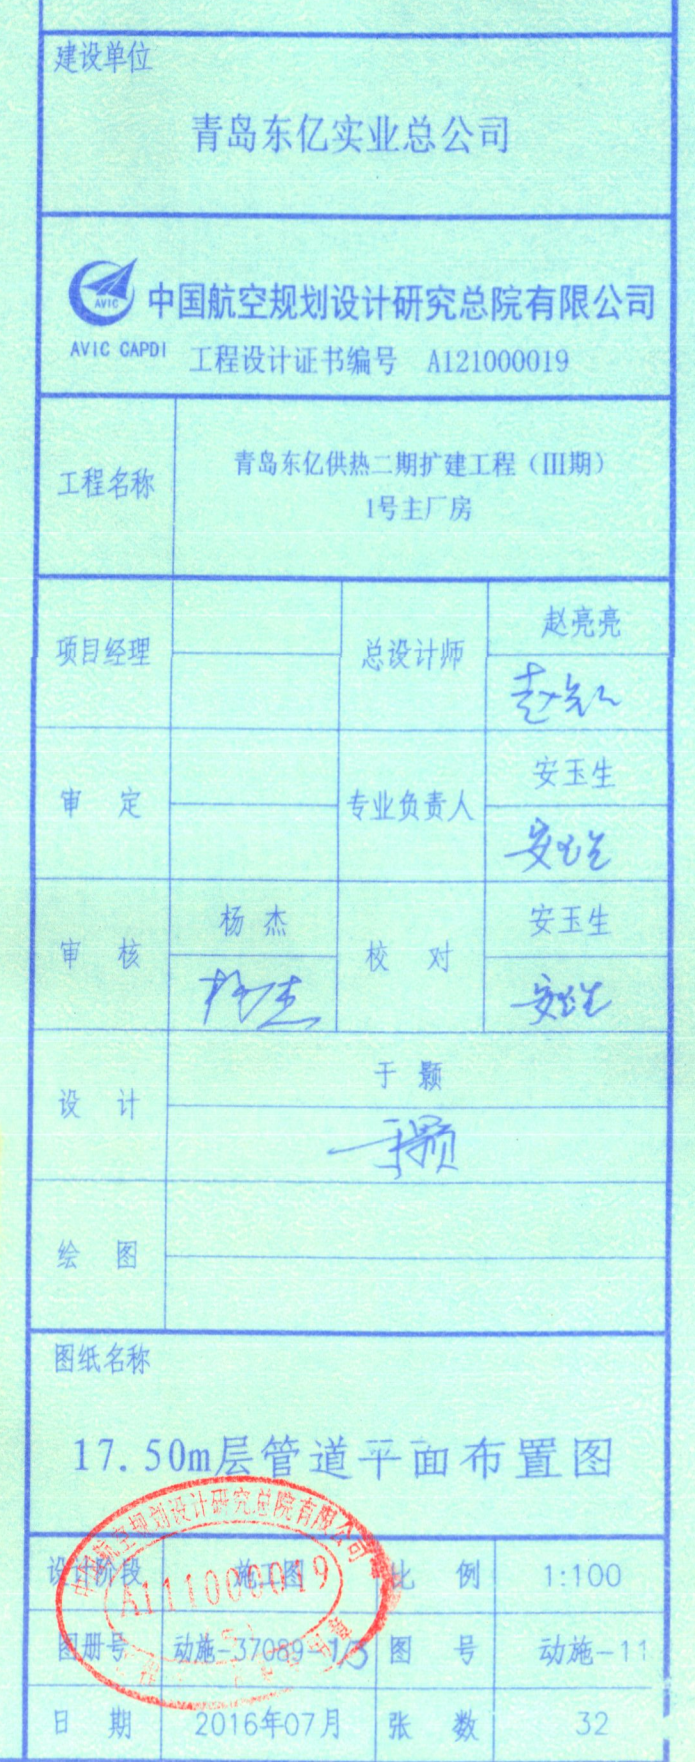 建设单位
青岛东亿实业总公司
AVIC
中国航空规划设计研究总院有限公司
AVIC CAPDI
工程设计证书编号 A121000019
工程名称
青岛东亿供热二期扩建工程（III期）
1号主厂房
项目经理
总设计师
赵亮亮
审 定
专业负责人
安玉生
安玉生
审 核
杨 杰
杨杰
校 对
安玉生
安玉生
设 计
于 颢
于颢
绘 图
图纸名称
17.50m层管道平面布置图
中国航空规划设计研究总院有限公司
A111000019
设计阶段 施工图 比 例 1:100
图册号 动施-37089-1/3 图 号 动施-11
日 期 2016年07月 张 数 32